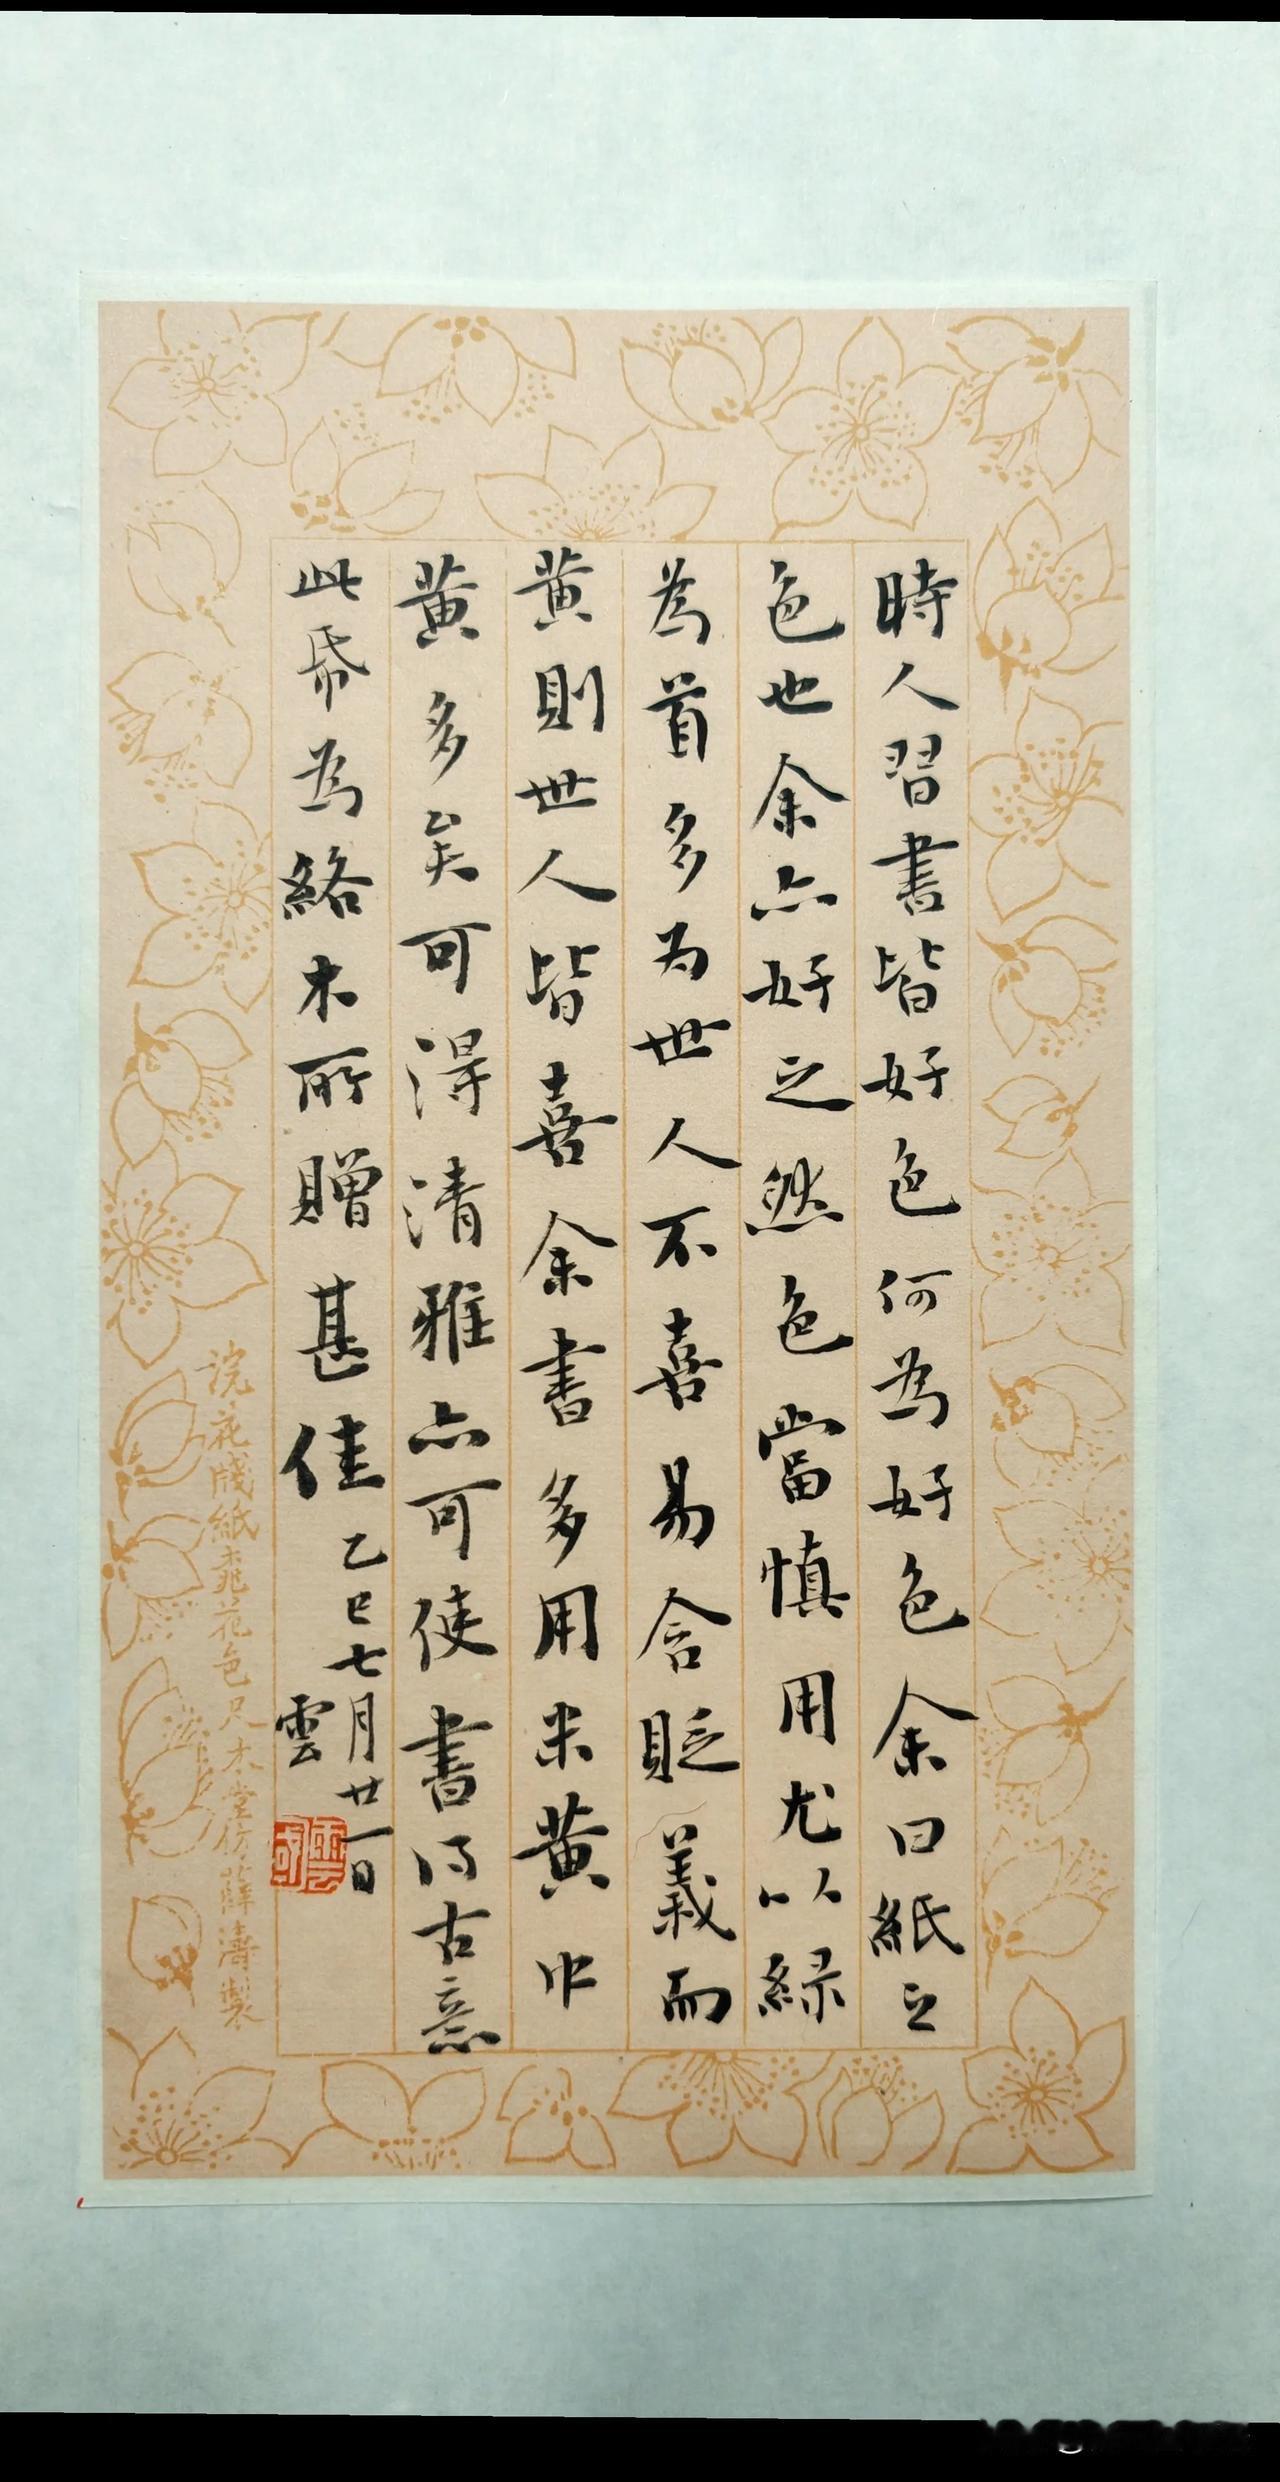 時人習書皆好色何為好色余曰紙之
色也余亦好之然色當慎用尤以緑
為首多為世人不喜易含貶義而
黄則世人皆喜余書多用米黄中
黄多矣可得清雅亦可使書得古意
此帋為絡木所贈甚佳
乙巳七月廿一日
雲
浣花牋紙桃花色尺木堂仿薛濤製